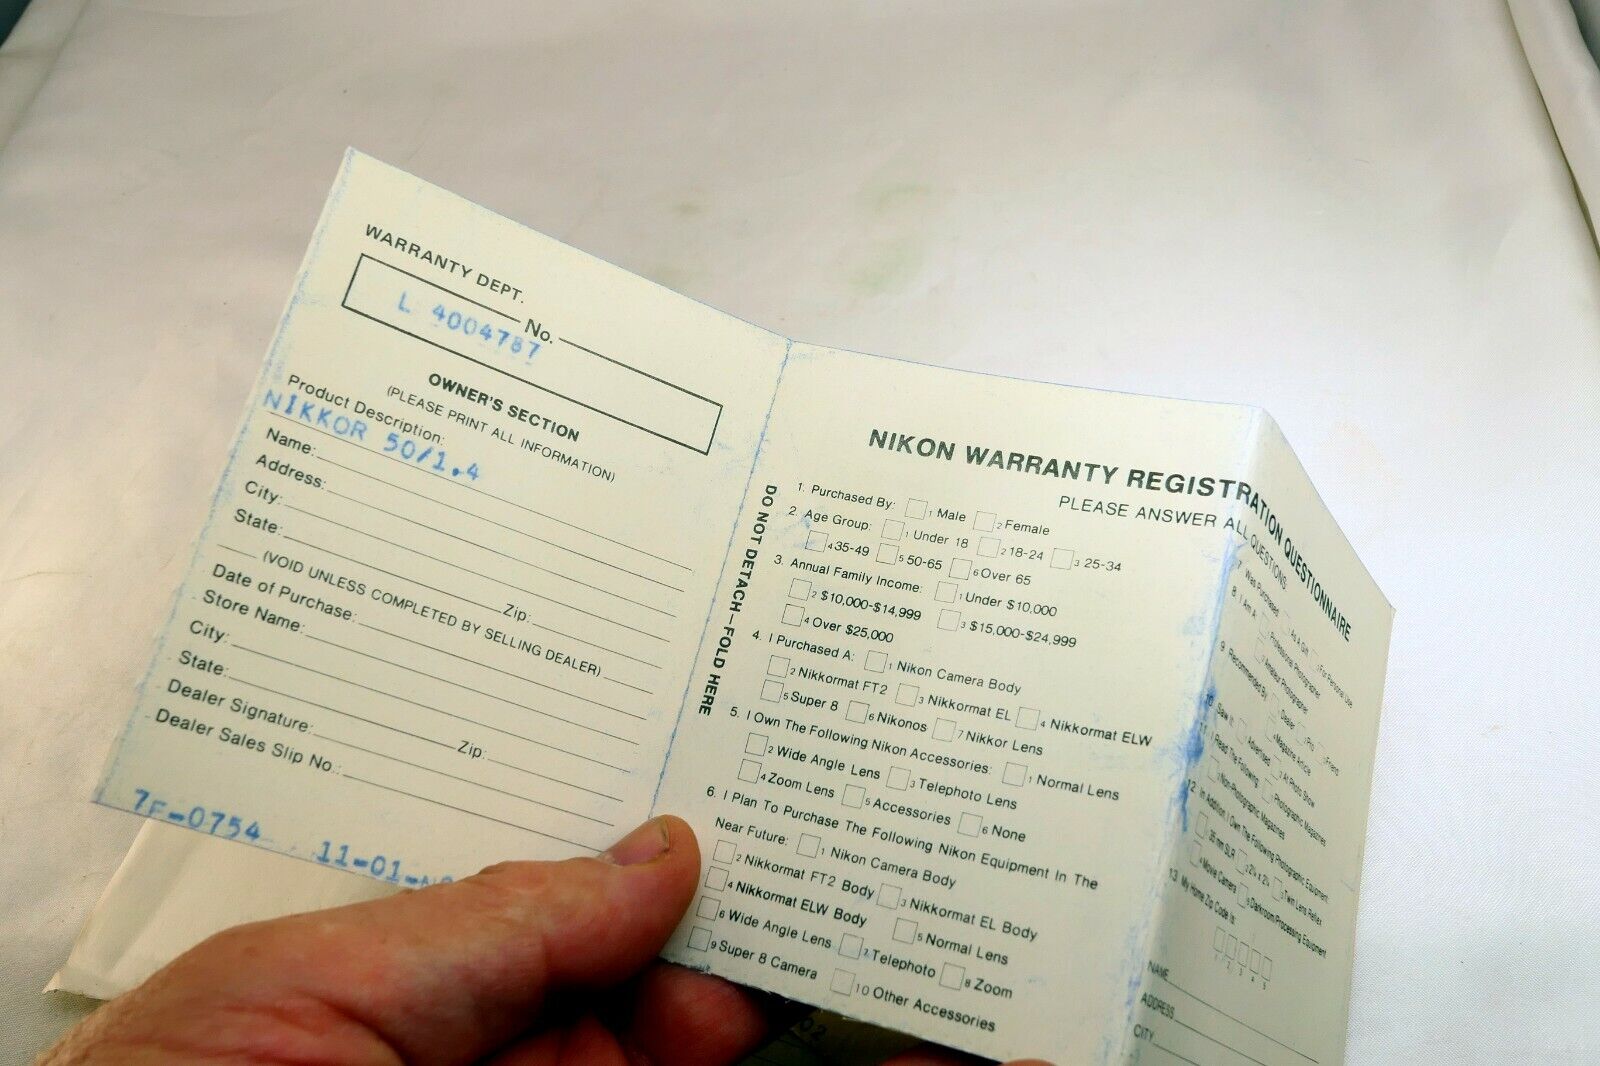 WARRANTY DEPT.
No.
L 4004787
OWNER'S SECTION
(PLEASE PRINT ALL INFORMATION)
Product Description:
NIKKOR 50/1.4
Name:
Address:
City:
State: Zip:
(VOID UNLESS COMPLETED BY SELLING DEALER)
Date of Purchase:
Store Name:
City:
State: Zip:
Dealer Signature:
Dealer Sales Slip No.:
7F-0754 11-01-
DO NOT DETACH—FOLD HERE
NIKON WARRANTY REGISTRATION QUESTIONNAIRE
PLEASE ANSWER ALL QUESTIONS
1. Purchased By: 1 Male 2 Female
2. Age Group: 1 Under 18 2 18-24 3 25-34
4 35-49 5 50-65 6 Over 65
3. Annual Family Income: 1 Under $10,000
2 $10,000-$14,999 3 $15,000-$24,999
4 Over $25,000
4. I Purchased A: 1 Nikon Camera Body
2 Nikkormat FT2 3 Nikkormat EL 4 Nikkormat ELW
5 Super 8 6 Nikonos 7 Nikkor Lens
5. I Own The Following Nikon Accessories: 1 Normal Lens
2 Wide Angle Lens 3 Telephoto Lens
4 Zoom Lens 5 Accessories 6 None
6. I Plan To Purchase The Following Nikon Equipment In The
Near Future: 1 Nikon Camera Body
2 Nikkormat FT2 Body 3 Nikkormat EL Body
4 Nikkormat ELW Body 5 Normal Lens
6 Wide Angle Lens 7 Telephoto 8 Zoom
9 Super 8 Camera 10 Other Accessories
7. Was Purchased As A Gift For Personal Use
8. I Am A Professional Photographer
Amateur Photographer
9. Recommended By Dealer Pro Friend
Magazine Article
10. Saw It Advertised At Photo Show
11. I Read The Following Photographic Magazines
Non-Photographic Magazines
12. In Addition I Own The Following Photographic Equipment
35 mm SLR 2¼ x 2¼ Twin Lens Reflex
Movie Camera Darkroom/Processing Equipment
13. My Home Zip Code Is:
1 2 3 4 5
NAME
ADDRESS
CITY